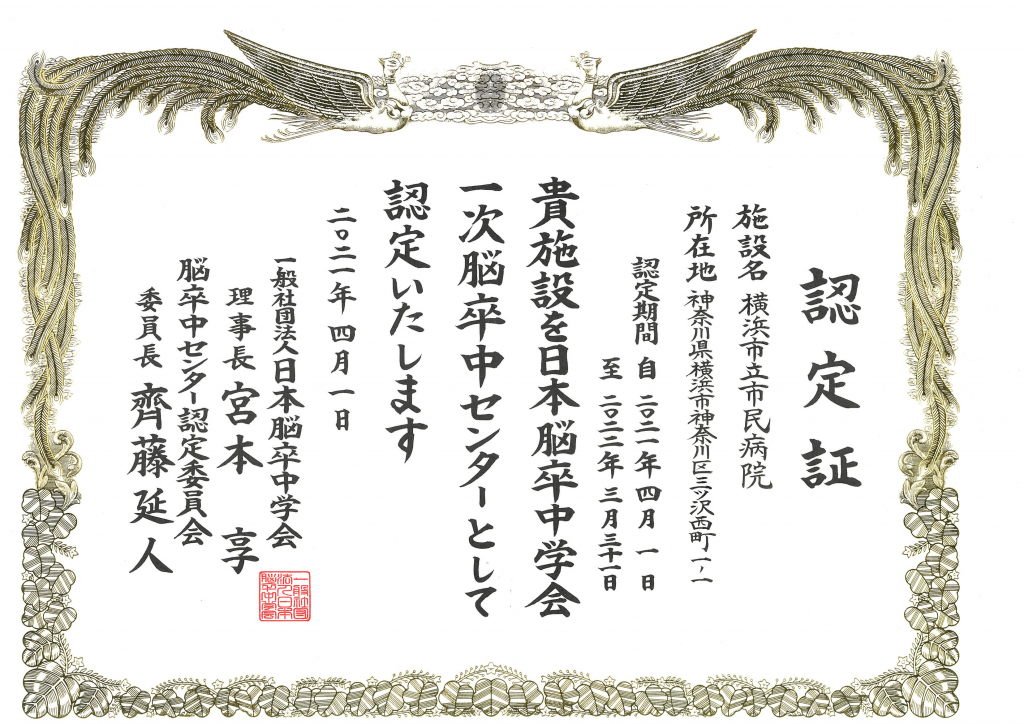 認定証
施設名 横浜市立市民病院
所在地 神奈川県横浜市神奈川区三ツ沢西町一ー一
認定期間 自 二〇二一年 四月 一日
至 二〇二二年 三月三十一日
貴施設を日本脳卒中学会
一次脳卒中センターとして
認定いたします
二〇二一年 四月 一日
一般社団法人日本脳卒中学会
理事長 宮本 享
脳卒中センター認定委員会
委員長 齊藤延人